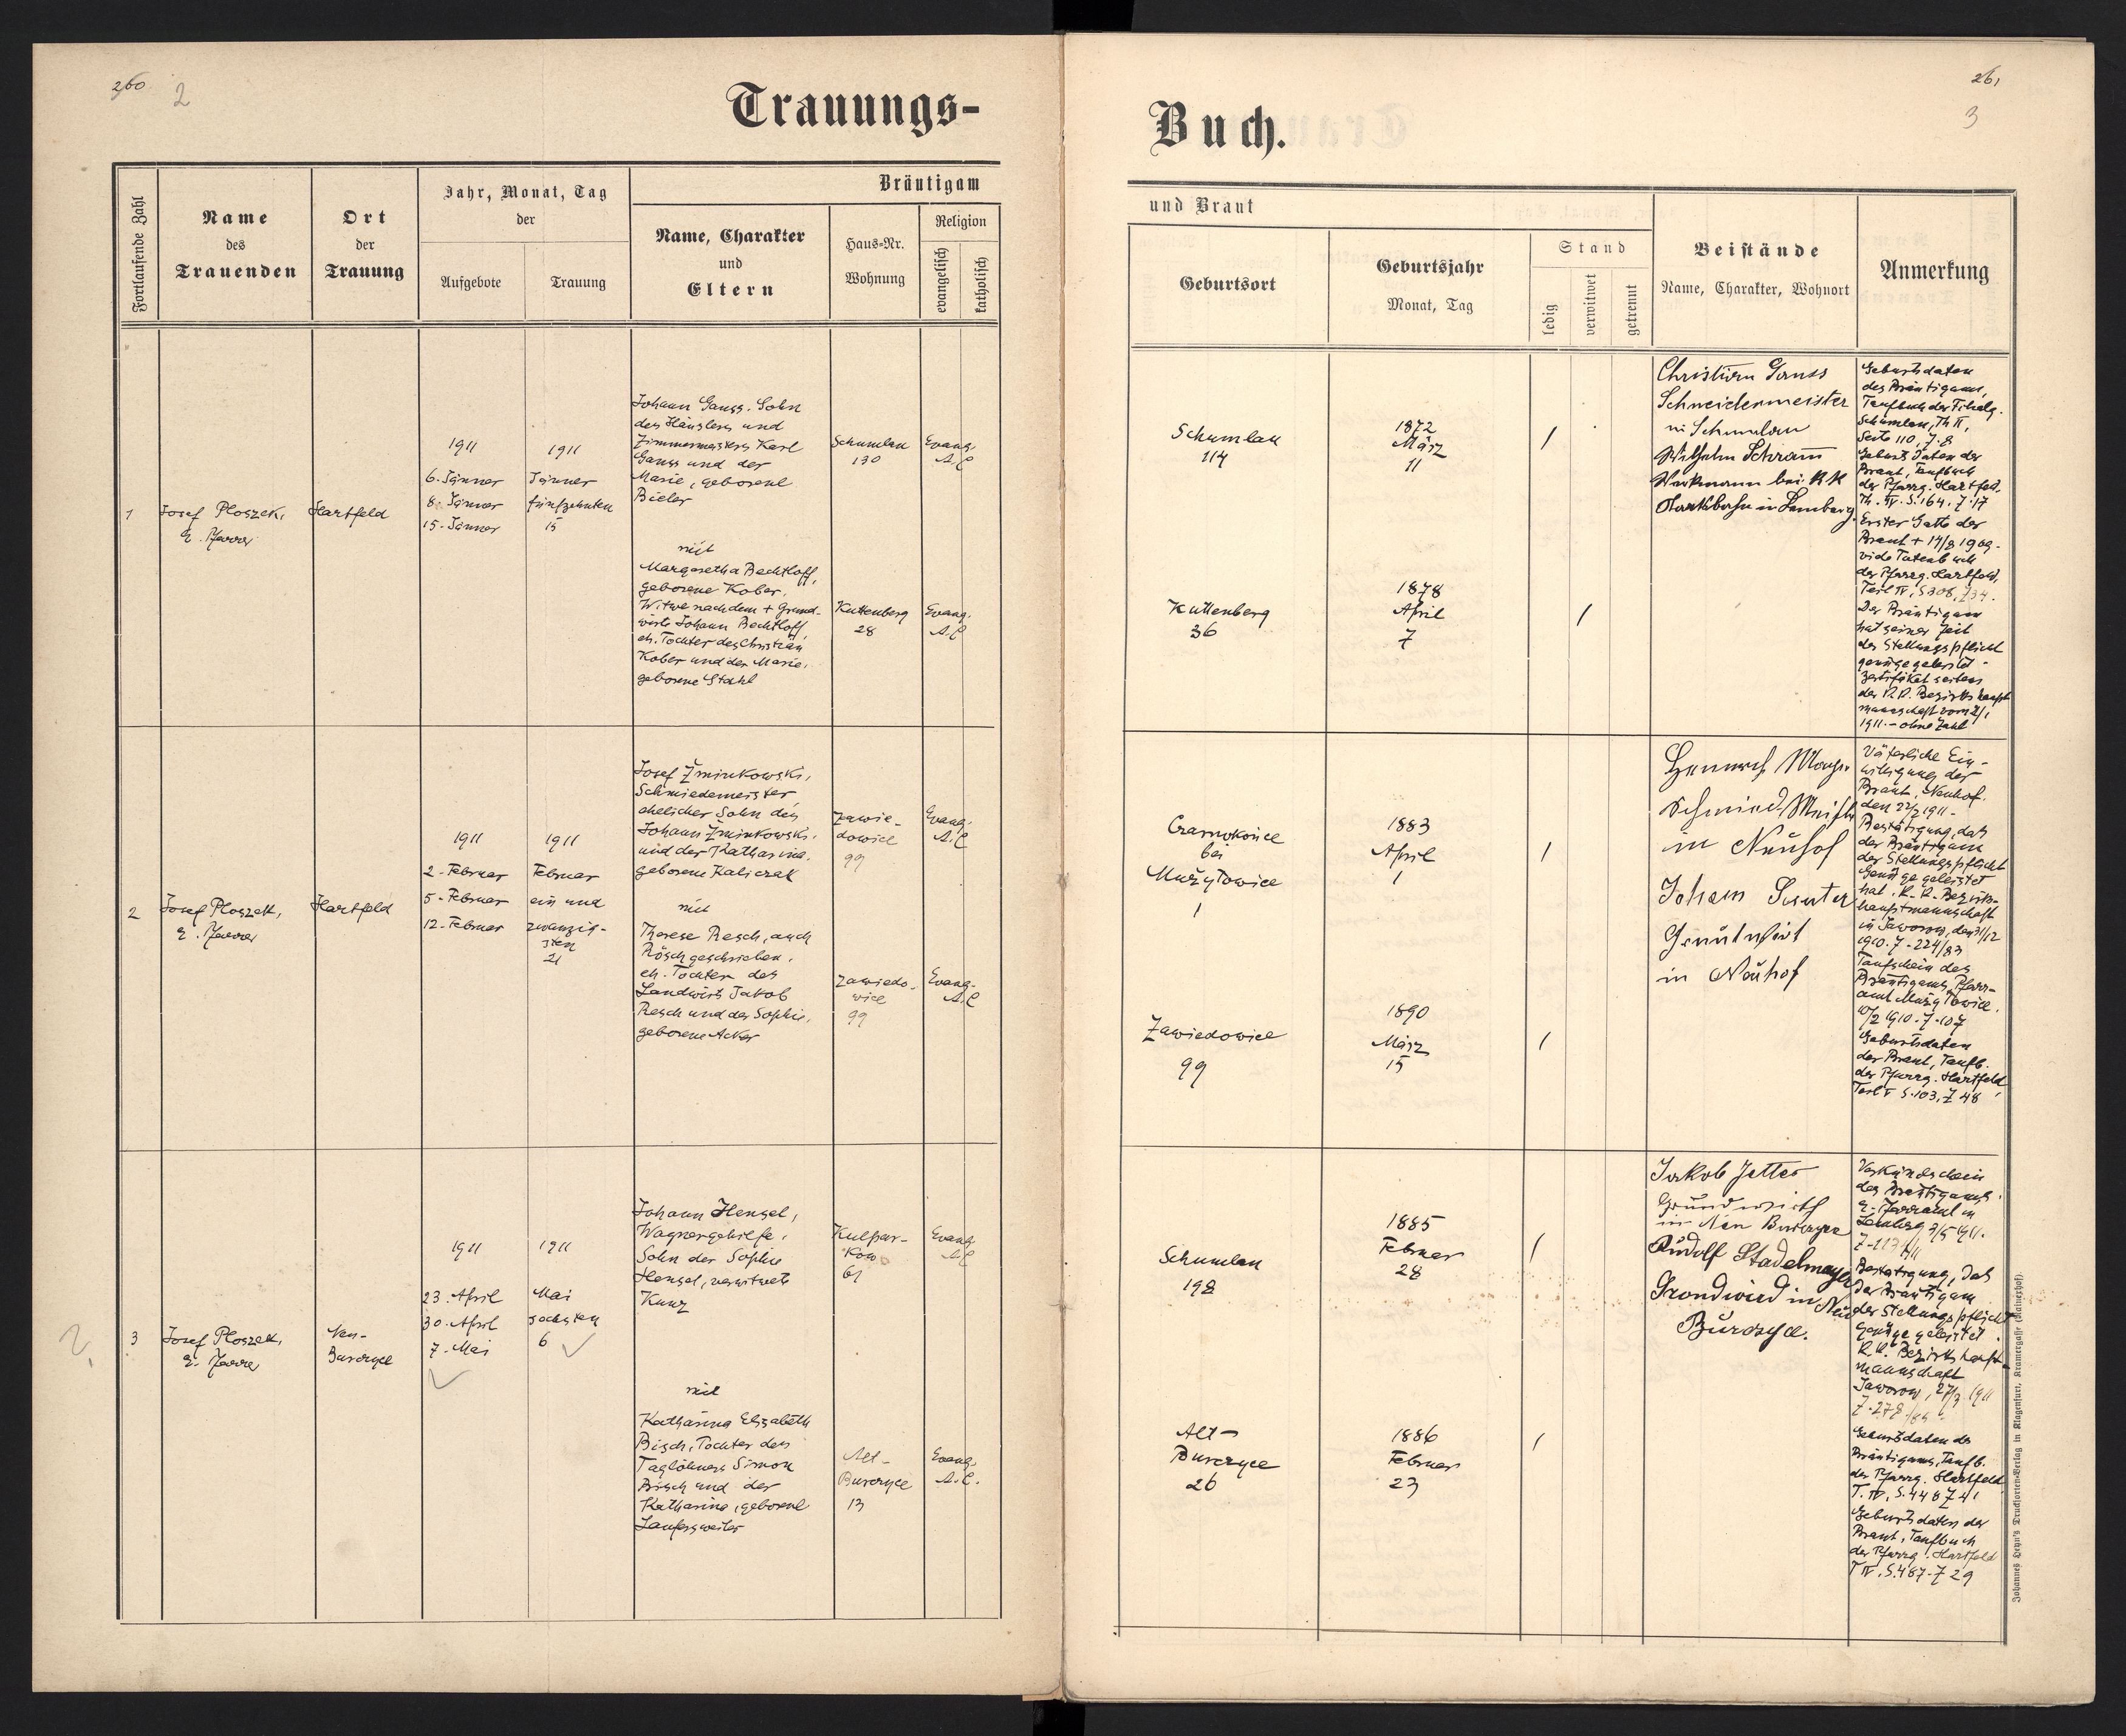 260
2
Trauungs-
Fortlaufende Zahl
Name
des
Trauenden
Ort
der
Trauung
Jahr, Monat, Tag
der
Aufgebote
Trauung
Bräutigam
Name, Charakter
und
Eltern
Haus-Nr.
Wohnung
Religion
evangelisch
katholisch
1
Josef Ploszek,
E. Pfarrer
Hartfeld
1911
6. Jänner
8. Jänner
15. Jänner
1911
Jänner
fünfzehnten
15
Johann Gauss. Sohn
des Häuslers und
Zimmermeisters Karl
Gauss und der
Marie, geborene
Bieler
Schumlau
130
Evang.
A.C
mit
Margaretha Bechtloff,
geborene Kober.
Witwe nach dem + Grund-
wirte Johann Bechtloff,
eh. Tochter des Christian
Kober und der Marie,
geborene Stahl
Kuttenberg
28
Evang.
A.C
2
Josef Ploszek,
E. Pfarrer
Hartfeld
1911
2. Februar
5. Februar
12. Februar
1911
Februar
ein und
zwanzig-
sten
21
Josef Żminkowski,
Schmiedemeister
ehelicher Sohn des
Johann Żminkowski
und der Katharina,
geborene Kaliczak
Zawie-
dowice
99
Evang.
A.C
mit
Therese Resch, auch
Rösch geschrieben.
eh. Tochter des
Landwirts Jakob
Resch und der Sophie,
geborene Acker
Zawiedo-
wice
99
Evang.
A.C
3
Josef Ploszek,
E. Pfarrer
Neu-
Burczyce
1911
23. April
30. April
7. Mai
1911
Mai
sechsten
6
Johann Hensel,
Wagnergehilfe,
Sohn der Sophie
Hensel, verwitwete
Kunz
Kulpar-
kow
61
Evang.
A.C
mit
Katharina Elisabeth
Bisch, Tochter des
Taglöhners Simon
Bisch und der
Katharina, geborene
Laufersweiler
Alt-
Burczyce
13
Evang.
A.C.
261
3
Buch.
und Braut
Geburtsort
Geburtsjahr
Monat, Tag
Stand
ledig
verwitwet
getrennt
Beistände
Name, Charakter, Wohnort
Anmerkung
Schumlau
114
1872
März
11
/
Christian Gauss
Schneidermeister
in Schumlau
Wilhelm Schramm
Werkmann bei KK
Staatsbahn in Lemberg.
Kuttenberg
36
1878
April
7
/
Geburtsdaten
des Bräutigams,
Taufbuch der Filialg.
Schumlau, Th II,
Seite 110, Z. 8
Geburtsdaten der
Braut, Taufbuch
der Pfarrg. Hartfeld.
Th. IV. S. 164. Z. 17
Erster Gatte der
Braut + 14/8 1909.
vide Totenbuch
der Pfarrg. Hartfeld,
Teil IV, S 308, Z 34.
Der Bräutigam
hat seiner Zeit
der Stellungspflicht
genüge geleistet -
Zertifikat seitens
der K.K. Bezirkshaupt-
mannschaft vom 2/1
1911. - ohne Zahl
Czarnokońce
bei
Mużyłowice
1
1883
April
1
/
Heinrich Mayer
Schmied Meister
in Neuhof
Johann Sauter
Grundwirt
in Neuhof
Zawiedowice
99
1890
März
15
/
Väterliche Ein-
willigung der
Braut, Neuhof.
den 22/2 1911.
Bestätigung, daß
der Bräutigam
der Stellungspflicht
Genüge geleistet
hat. K.K. Bezirks-
hauptmannschaft
in Jaworow, den 31/12
1910. Z. 224/83
Taufschein des
Bräutigams, Pfarr-
amt Mużyłowice.
10/2 1910. Z. 107
Geburtsdaten
der Braut, Taufb.
der Pfarrg. Hartfeld,
Teil V S. 103, Z 48
Schumlau
198
1885
Februar
28
/
Jakob Jetter
Grundwirth
in Neu Burczyce
Rudolf Stadelmayer
Grondwird in Neu
Burczyce.
Alt-
Burczyce
26
1886
Februar
23
/
Verkündschein
des Bräutigams.
E. Pfarramt in
Lemberg 3/5 1911.
Bestätigung, daß
der Bräutigam
der Stellungspflicht
Genüge geleistet.
K.K. Bezirkshaupt-
mannschaft
Jaworow, 27/3 1911
Z. 278/85
Geburtsdaten des
Bräutigams, Taufb.
der Pfarrg. Hartfeld
T. IV, S. 448 Z 41
Geburtsdaten der
Braut, Taufbuch
der Pfarrg. Hartfeld
T IV. S. 487. Z 29
Johannes Heyn's Drucksorten-Verlag in Klagenfurt, Kramergasse (Kleinerhof).